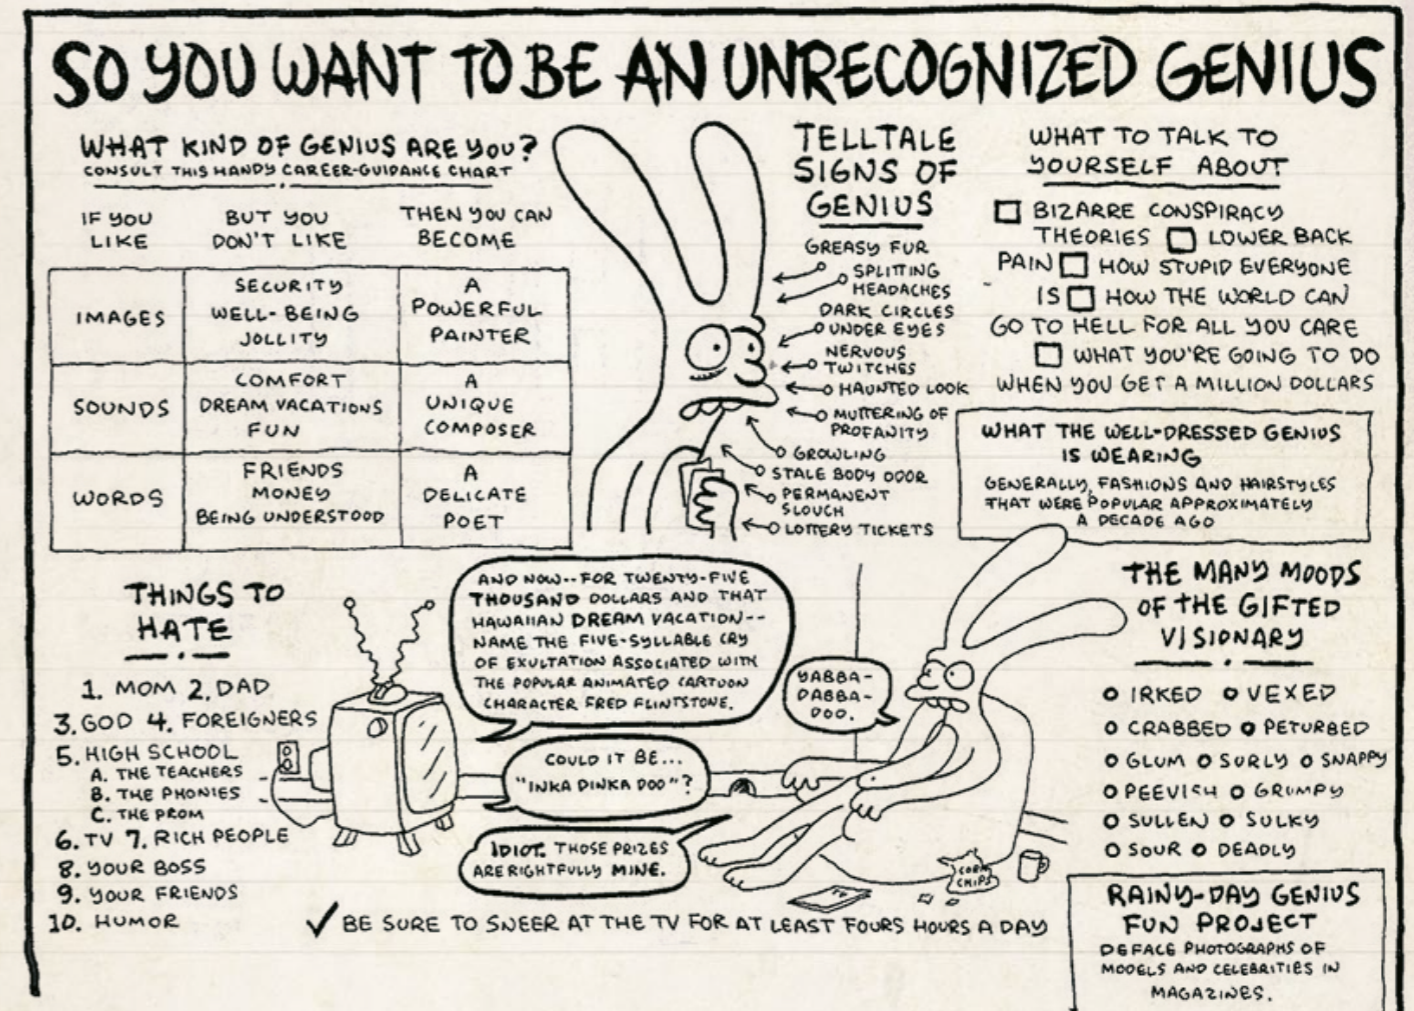 SO YOU WANT TO BE AN UNRECOGNIZED GENIUS
WHAT KIND OF GENIUS ARE YOU?
CONSULT THIS HANDY CAREER-GUIDANCE CHART
IF YOU
LIKE
BUT YOU
DON'T LIKE
THEN YOU CAN
BECOME
IMAGES
SECURITY
WELL-BEING
JOLLITY
A
POWERFUL
PAINTER
SOUNDS
COMFORT
DREAM VACATIONS
FUN
A
UNIQUE
COMPOSER
WORDS
FRIENDS
MONEY
BEING UNDERSTOOD
A
DELICATE
POET
TELLTALE
SIGNS OF
GENIUS
GREASY FUR
SPLITTING
HEADACHES
DARK CIRCLES
UNDER EYES
NERVOUS
TWITCHES
HAUNTED LOOK
MUTTERING OF
PROFANITY
GROWLING
STALE BODY ODOR
PERMANENT
SLOUCH
LOTTERY TICKETS
WHAT TO TALK TO
YOURSELF ABOUT
BIZARRE CONSPIRACY
THEORIES LOWER BACK
PAIN HOW STUPID EVERYONE
IS HOW THE WORLD CAN
GO TO HELL FOR ALL YOU CARE
WHAT YOU'RE GOING TO DO
WHEN YOU GET A MILLION DOLLARS
WHAT THE WELL-DRESSED GENIUS
IS WEARING
GENERALLY, FASHIONS AND HAIRSTYLES
THAT WERE POPULAR APPROXIMATELY
A DECADE AGO
THINGS TO
HATE
1. MOM 2. DAD
3. GOD 4. FOREIGNERS
5. HIGH SCHOOL
A. THE TEACHERS
B. THE PHONIES
C. THE PROM
6. TV 7. RICH PEOPLE
8. YOUR BOSS
9. YOUR FRIENDS
10. HUMOR
AND NOW--FOR TWENTY-FIVE
THOUSAND DOLLARS AND THAT
HAWAIIAN DREAM VACATION--
NAME THE FIVE-SYLLABLE CRY
OF EXULTATION ASSOCIATED WITH
THE POPULAR ANIMATED CARTOON
CHARACTER FRED FLINTSTONE.
YABBA-
DABBA-
DOO.
COULD IT BE...
"INKA DINKA DOO"?
IDIOT. THOSE PRIZES
ARE RIGHTFULLY MINE.
CORN
CHIPS
TV
✓ BE SURE TO SNEER AT THE TV FOR AT LEAST FOURS HOURS A DAY
THE MANY MOODS
OF THE GIFTED
VISIONARY
IRKED VEXED
CRABBED PETURBED
GLUM SURLY SNAPPY
PEEVISH GRUMPY
SULLEN SULKY
SOUR DEADLY
RAINY-DAY GENIUS
FUN PROJECT
DEFACE PHOTOGRAPHS OF
MODELS AND CELEBRITIES IN
MAGAZINES.